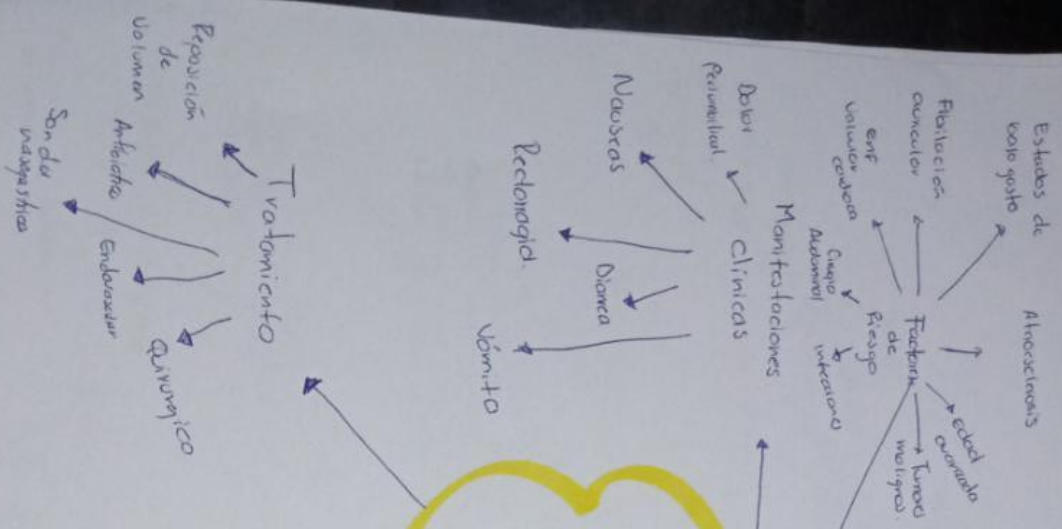 Estados de
bajo gasto
Fibrilación
auricular
enf
valvular
cardiaca
Atheroesclerosis
Factores
de
Riesgo
Cirugía
Abdominal
infecciones
edad
avanzada
Tumores
malignos.
Manifestaciones
Clínicas
Dolor
Periumbilical.
Nauseas
Rectorragia.
Diarrea
Vómito
Tratamiento
Reposición
de
volumen
Antibiotico
Sonda
nasogástrica
Endovascular
Quirurgico